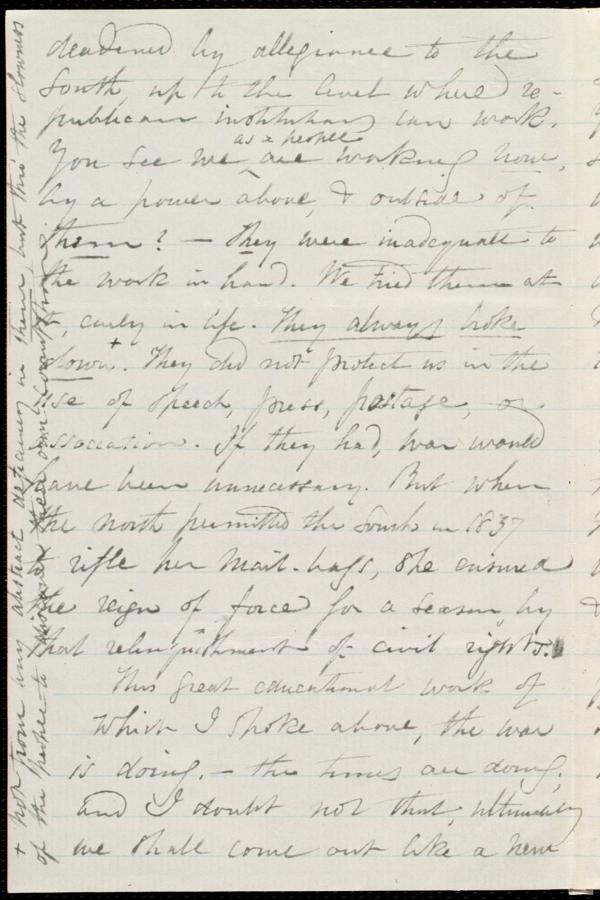 deadened by allegiance to the
South, up to the level where re-
publican institutions can work.
as a people
You see we are working now,
by a power above, & outside of
them? — They were inadequate to
the work in hand. We tried them at
it, early in life. They always broke
down.+ They did not protect us in the
use of speech, press, postage, or
association. If they had, war would
have been unnecessary. But when
the north permitted the South in 1837
to rifle her mail-bags, she ensured
the reign of force for a season by
that relinquishment of civil rights.
This great educational work of
which I spoke above, the war
is doing, — the times are doing,
and I doubt not that, ultimately
we shall come out like a new
+ not from any abstract deficiency in them, but this the slowness
of the people to discover their own